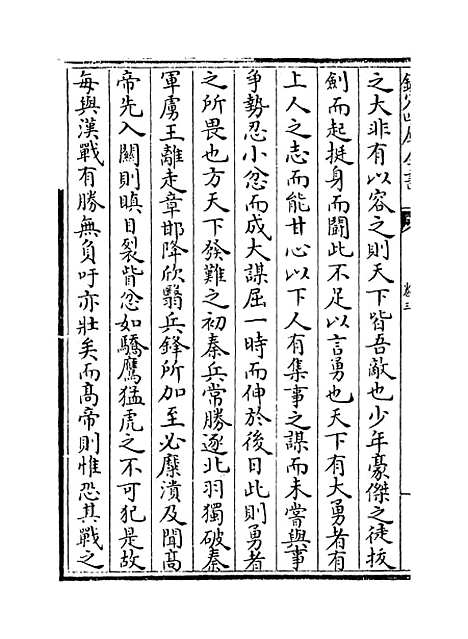 欽定四庫全書
卷三
之大非有以容之則天下皆吾敵也少年豪傑之徒拔
劍而起挺身而鬭此不足以言勇也天下有大勇者有
上人之志而能甘心以下人有集事之謀而未嘗與事
爭勢忍小忿而成大謀屈一時而伸於後日此則勇者
之所畏也方天下發難之初秦兵常勝逐北羽獨破秦
軍虜王離走章邯降欣翳兵鋒所加至必糜潰及聞髙
帝先入闗則瞋目裂眥忿如驕鷹猛虎之不可犯是故
每與漢戰有勝無負吁亦壯矣而髙帝則惟恐其戰之